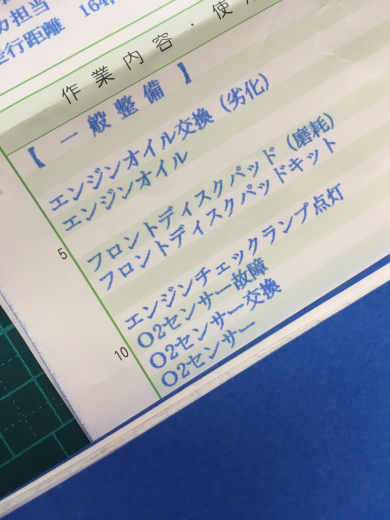 担当
走行距離 164,
作業内容・使
【一般整備】
エンジンオイル交換(劣化)
エンジンオイル
5
フロントディスクパッド(磨耗)
フロントディスクパッドキット
エンジンチェックランプ点灯
O2センサー故障
10
O2センサー交換
O2センサー